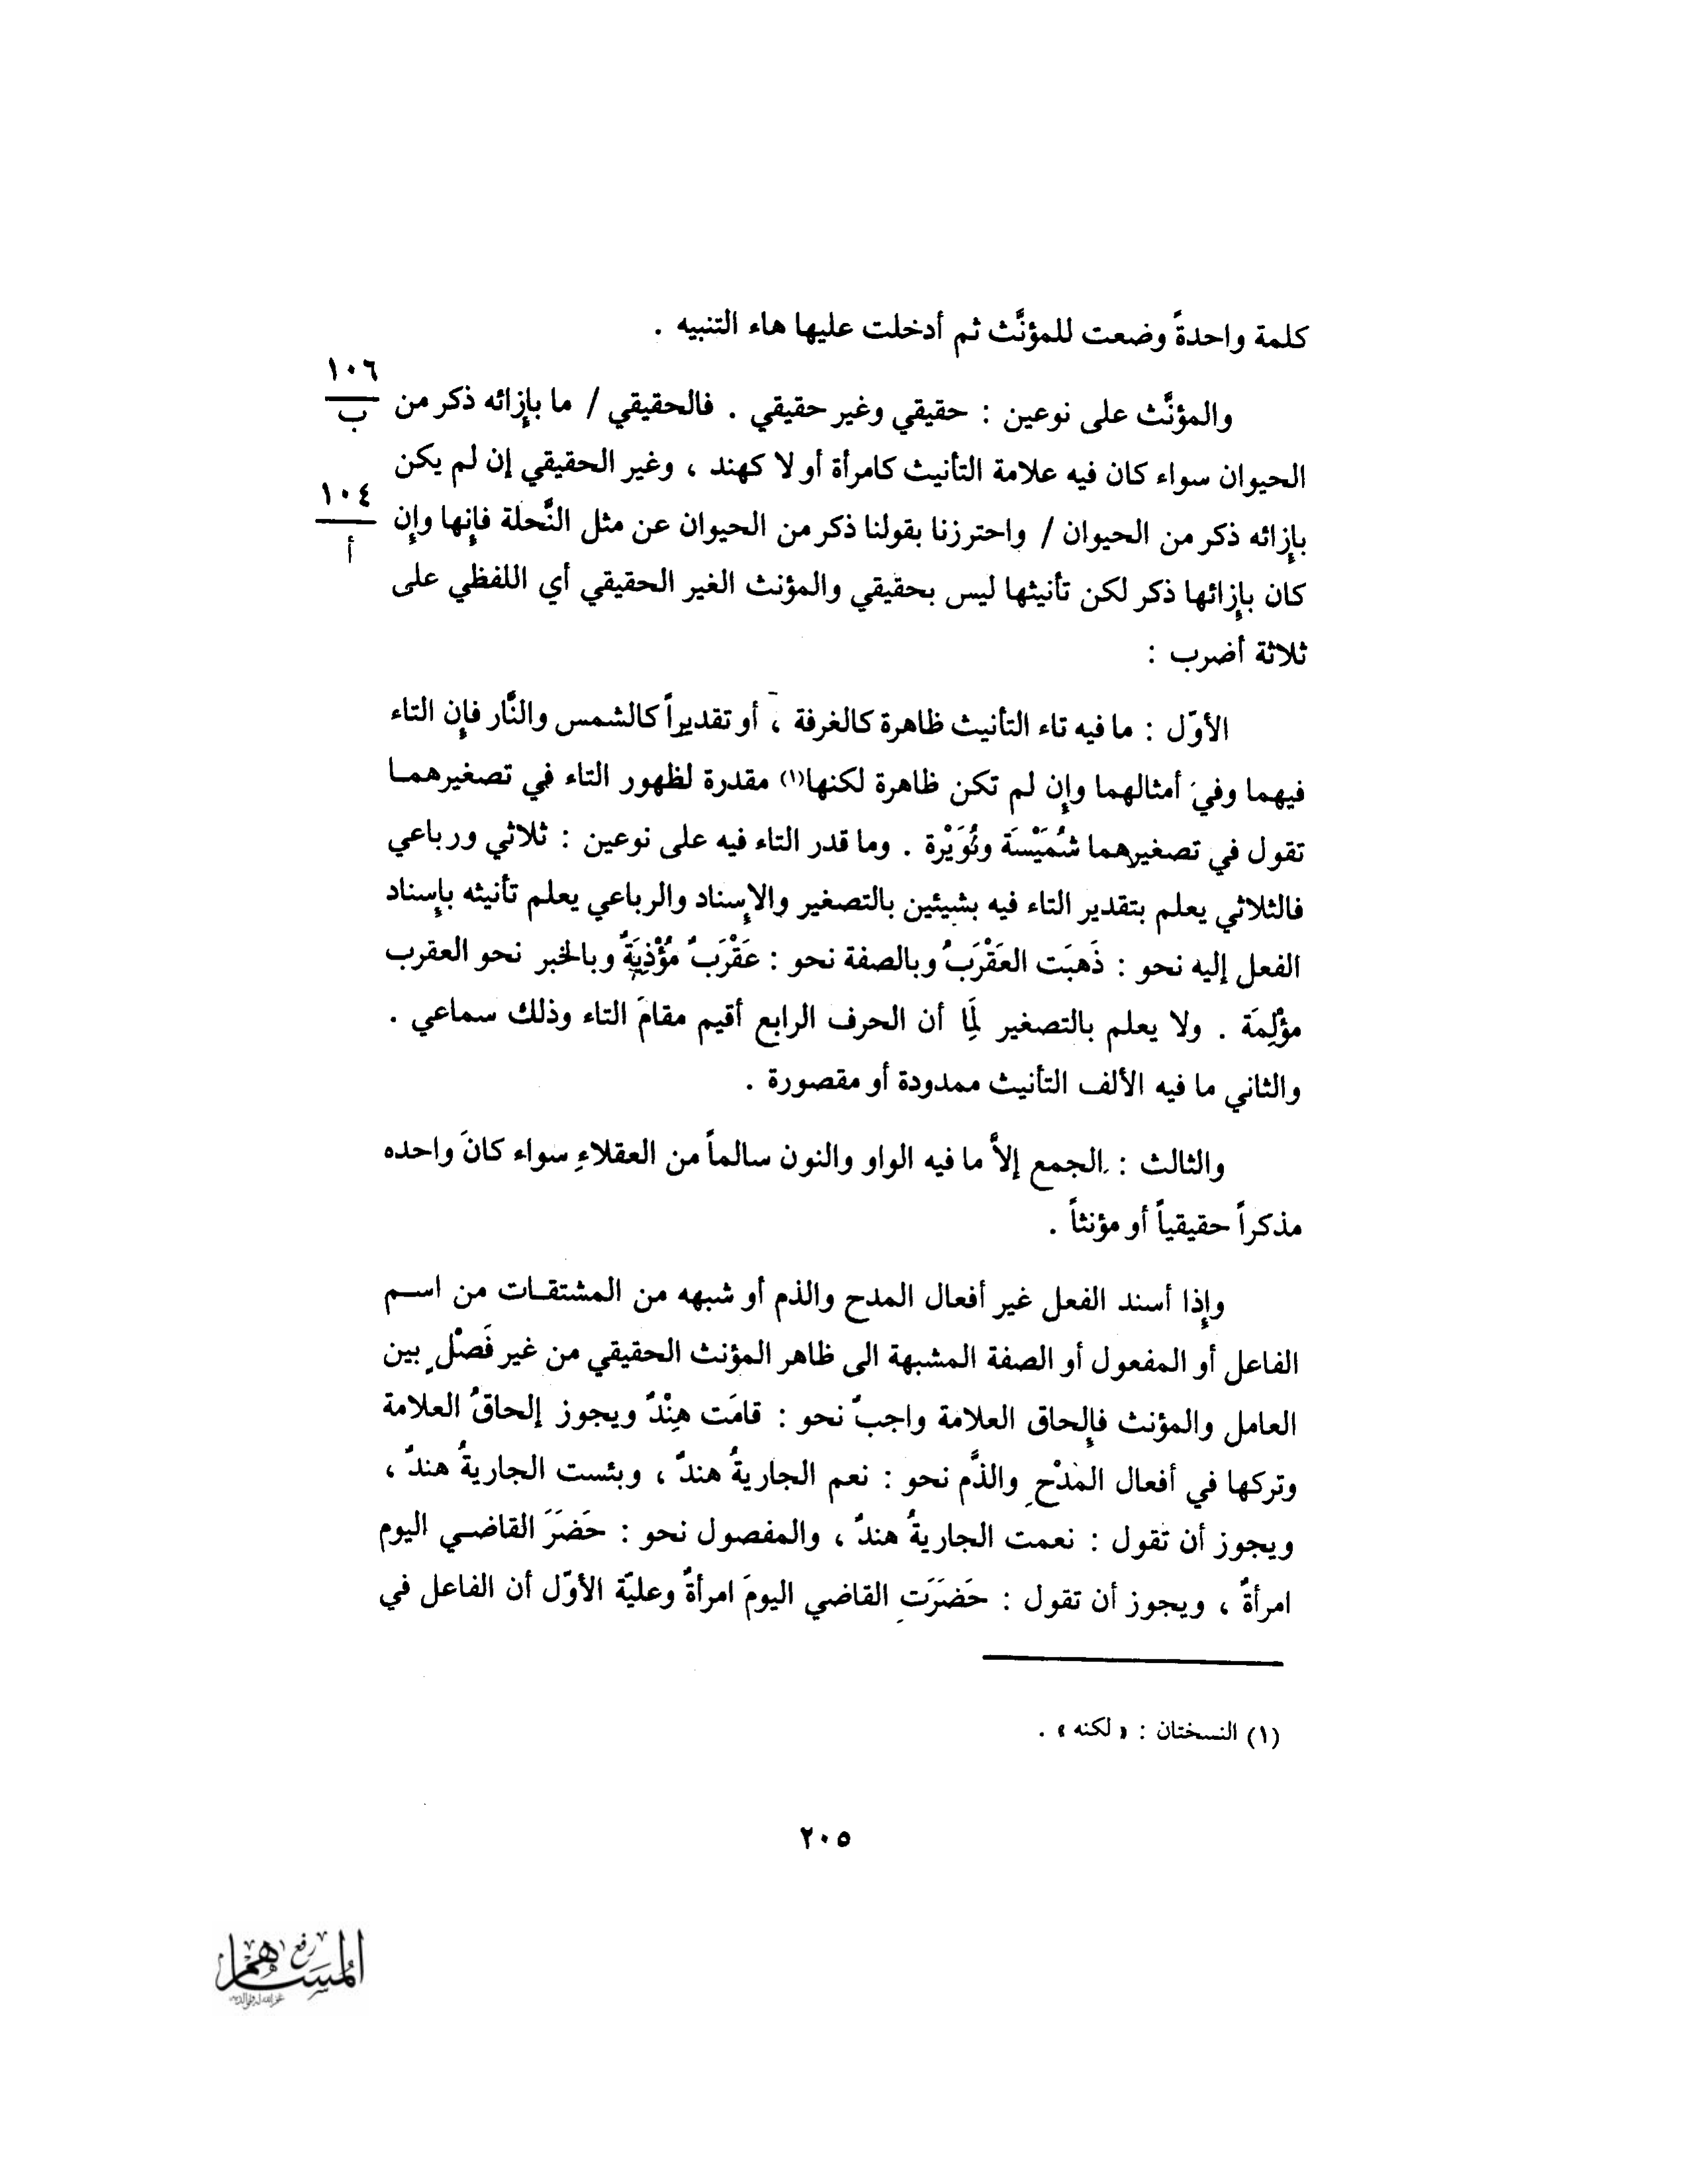 كلمة واحدةً وضعت للمؤنَّث ثم أدخلت عليها هاء التنبيه .
١٠٦
ب
والمؤنَّث على نوعين : حقيقي وغير حقيقي . فالحقيقي / ما بإزائه ذكر من
الحيوان سواء كان فيه علامة التأنيث كامرأة أو لا كهند ، وغير الحقيقي إن لم يكن
١٠٤
أ
بإزائه ذكر من الحيوان / واحترزنا بقولنا ذكر من الحيوان عن مثل النَّحلة فإنها وإن
كان بإزائها ذكر لكن تأنيثها ليس بحقيقي والمؤنث الغير الحقيقي أي اللفظي على
ثلاثة أضرب :
الأوّل : ما فيه تاء التأنيث ظاهرة كالغرفة ، أو تقديراً كالشمس والنَّار فإن التاء
فيهما وفي أمثالهما وإن لم تكن ظاهرة لكنها(١) مقدرة لظهور التاء في تصغيرهما
تقول في تصغيرهما شُمَيْسَة ونُوَيْرة . وما قدر التاء فيه على نوعين : ثلاثي ورباعي
فالثلاثي يعلم بتقدير التاء فيه بشيئين بالتصغير والإسناد والرباعي يعلم تأنيثه بإسناد
الفعل إليه نحو : ذَهبَت العَقْرَبُ وبالصفة نحو : عَقْرَبٌ مُؤْذِيَةٌ وبالخبر نحو العقرب
مؤْلِمَة . ولا يعلم بالتصغير لِمَا أن الحرف الرابع أقيم مقامَ التاء وذلك سماعي .
والثاني ما فيه الألف التأنيث ممدودة أو مقصورة .
والثالث : الجمع إلاَّ ما فيه الواو والنون سالماً من العقلاءِ سواء كانَ واحده
مذكراً حقيقياً أو مؤنثاً .
وإذا أسند الفعل غير أفعال المدح والذم أو شبهه من المشتقات من اسم
الفاعل أو المفعول أو الصفة المشبهة الى ظاهر المؤنث الحقيقي من غير فَصْلٍ بين
العامل والمؤنث فإلحاق العلامة واجبٌ نحو : قامَت هِنْدٌ ويجوز إلحاقُ العلامة
وتركها في أفعال المَدْحِ والذَّم نحو : نعم الجاريةُ هندٌ ، وبئست الجاريةُ هندٌ ،
ويجوز أن تقول : نعمت الجاريةُ هندٌ ، والمفصول نحو : حَضَرَ القاضي اليوم
امرأةٌ ، ويجوز أن تقول : حَضَرَتِ القاضي اليومَ امرأةٌ وعليّة الأوّل أن الفاعل في
(١) النسختان : « لكنه » .
٢٠٥
رفع
المساهم
غفر الله له ولوالديه